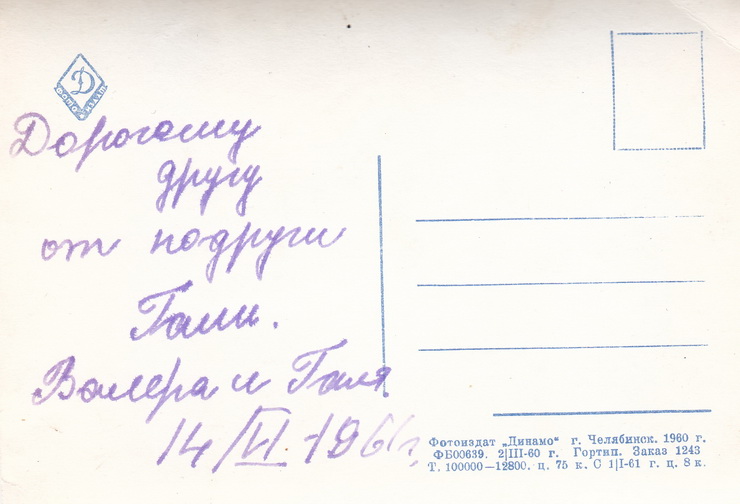 Дорогому
другу
от подруги
Гали.
Валера и Галя
14/VI-1961 г.
Фотоиздат „Динамо“ г. Челябинск. 1960 г.
ФБ00639. 2|III-60 г. Гортип. Заказ 1243
Т. 100000—12800. ц. 75 к. С 1|I-61 г. ц. 8 к.